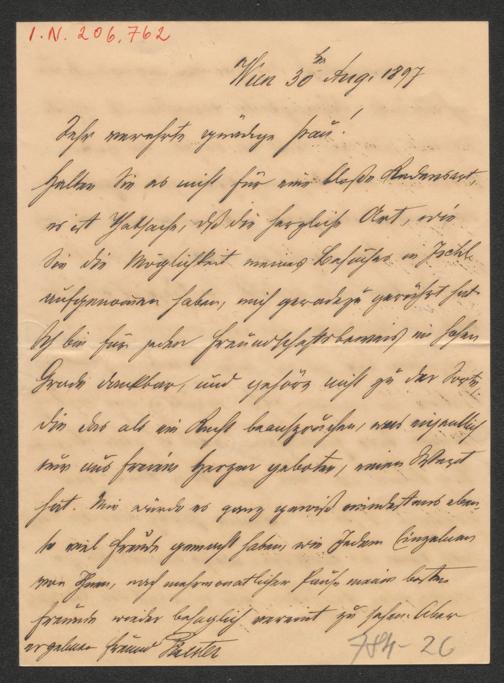 I.N. 206.762
Wien 30ten Aug. 1897
Sehr verehrte gnädige Frau!
Halten Sie es nicht für eine bloße Redensart,
es ist Thatsache, daß die herzliche Art, wie
Sie die Möglichkeit meines Besuches in Ischl
aufgenommen haben, mich geradezu gerührt hat.
Ich bin für jeden Freundschaftsbeweis im hohen
Grade dankbar, und gehöre nicht zu der Sorte,
die das als ein Recht beanspruchen, was eigentlich
nur aus freiem Herzen geboten, einen Werth
hat. Mir würde es ganz gewiß mindestens eben
so viel Freude gemacht haben, wie Jedem Einzelnen
von Ihnen, nach mehrmonatlicher Pause meine besten
Freunde wieder behaglich vereint zu sehen. Aber
ergebener Freund
784-26